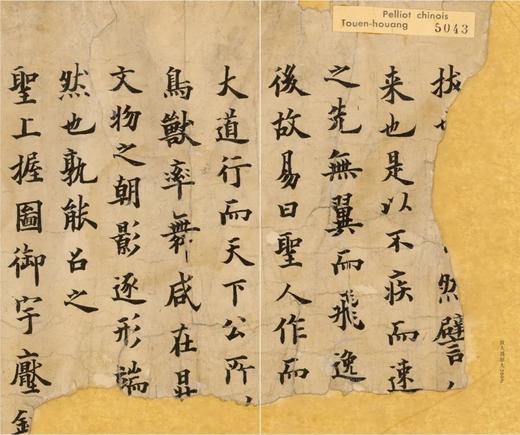 Pelliot chinois
Touen-houang 5043
拔 然譬
来也是以不疾而速
之先無翼而飛逸
後故易曰聖人作而
大道行而天下公所
鳥獸率舞咸在
文物之朝影逐形端
然也孰能名之
聖上握圖御宇壓